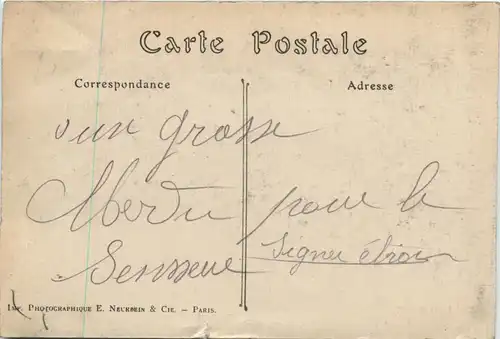 Carte Postale
Correspondance
Adresse
un grosse
Merdu pour le
Senseur
Signer
Imp. Photographique E. Neurdein & Cie. – Paris.